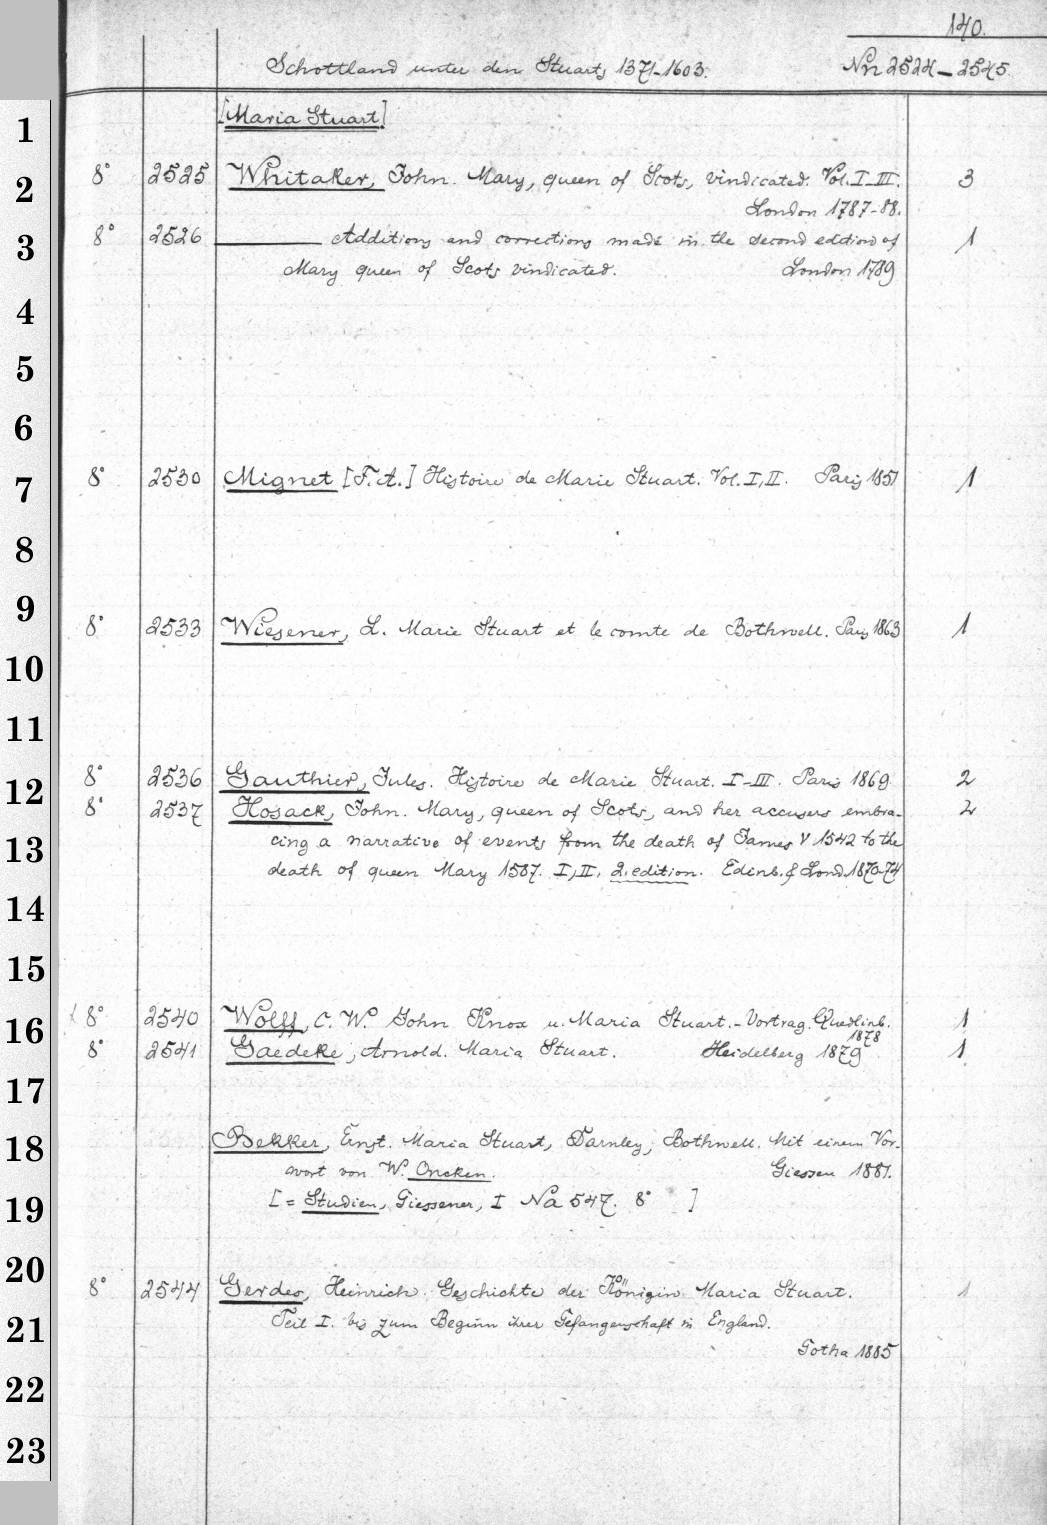 140.
Schottland unter den Stuarts 1371-1603. Nn 2524-2545.
1 [Maria Stuart]
2 8° 2525 Whitaker, John. Mary, queen of Scots, vindicated. Vol. I-III. 3
London 1787-88.
3 8° 2526 ——— Additions and corrections made in the second edition of 1
Mary queen of Scots vindicated. London 1789
4
5
6
7 8° 2530 Mignet [F. A.] Histoire de Marie Stuart. Vol. I, II. Paris 1851 1
8
9 8° 2533 Wiesener, L. Marie Stuart et le comte de Bothwell. Paris 1863 1
10
11
12 8° 2536 Gauthier, Jules. Histoire de Marie Stuart. I-III. Paris 1869 2
8° 2537 Hosack, John. Mary, queen of Scots, and her accusers embra- 2
13 cing a narrative of events from the death of James V 1542 to the
death of queen Mary 1587. I, II, 2. edition. Edinb. & Lond. 1870-74
14
15
16 8° 2540 Wolff, C. W. John Knox u. Maria Stuart. - Vortrag. Quedlinb. 1878 1
8° 2541 Gaedeke, Arnold. Maria Stuart. Heidelberg 1879 1
17
18 Bekker, Ernst. Maria Stuart, Darnley, Bothwell. Mit einem Vor-
wort von W. Oncken. Giessen 1881.
19 [= Studien, Giessener, I Na 547. 8° ]
20 8° 2544 Gerdes, Heinrich. Geschichte der Königin Maria Stuart. 1
21 Teil I. bis zum Beginn ihrer Gefangenschaft in England.
Gotha 1885
22
23